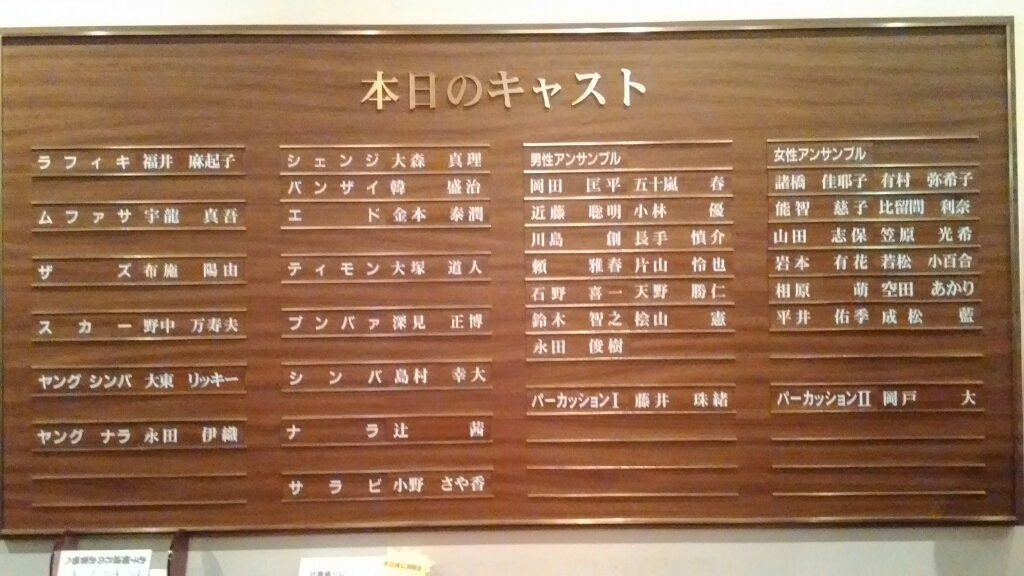 本日のキャスト
ラフィキ 福井 麻起子
ムファサ 宇龍 真吾
ザズ 布施 陽由
スカー 野中 万寿夫
ヤング シンバ 大東 リッキー
ヤング ナラ 永田 伊織
シェンジ 大森 真理
バンザイ 韓 盛治
エド 金本 泰潤
ティモン 大塚 道人
プンバァ 深見 正博
シンバ 島村 幸大
ナラ 辻 茜
サラビ 小野 さや香
男性アンサンブル
岡田 匡平 五十嵐 春
近藤 聡明 小林 優
川島 創 長手 慎介
頼 雅春 片山 怜也
石野 喜一 天野 勝仁
鈴木 智之 桧山 憲
永田 俊樹
パーカッションⅠ 藤井 珠緒
女性アンサンブル
諸橋 佳耶子 有村 弥希子
能智 慈子 比留間 利奈
山田 志保 笠原 光希
岩本 有花 若松 小百合
相原 萌 空田 あかり
平井 佑季 成松 藍
パーカッションⅡ 岡戸 大